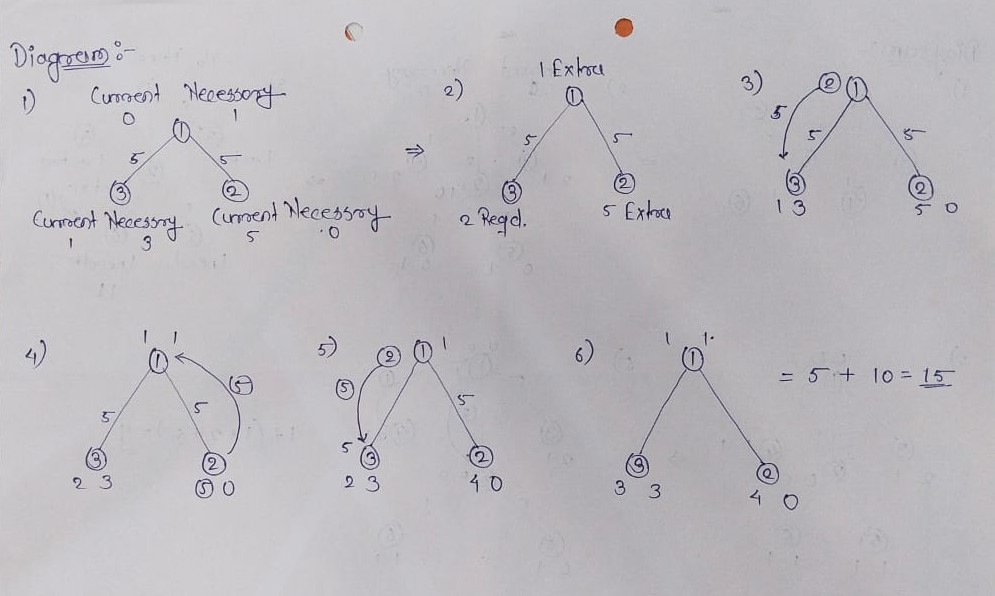 Diagram :-
1)
Current Necessary
0 1
1
5 5
3 2
Current Necessary
1 3
Current Necessary
5 0
⇒
2)
1 Extra
1
5 5
3 2
2 Reqd.
5 Extra
3)
2 1
5 5 5
3 2
1 3 5 0
4)
1 1
1
5 5 5
3 2
2 3 5 0
5)
2 1 1
5 5
5 3 2
2 3 4 0
6)
1 1.
1
3 2
3 3 4 0
= 5 + 10 = 15